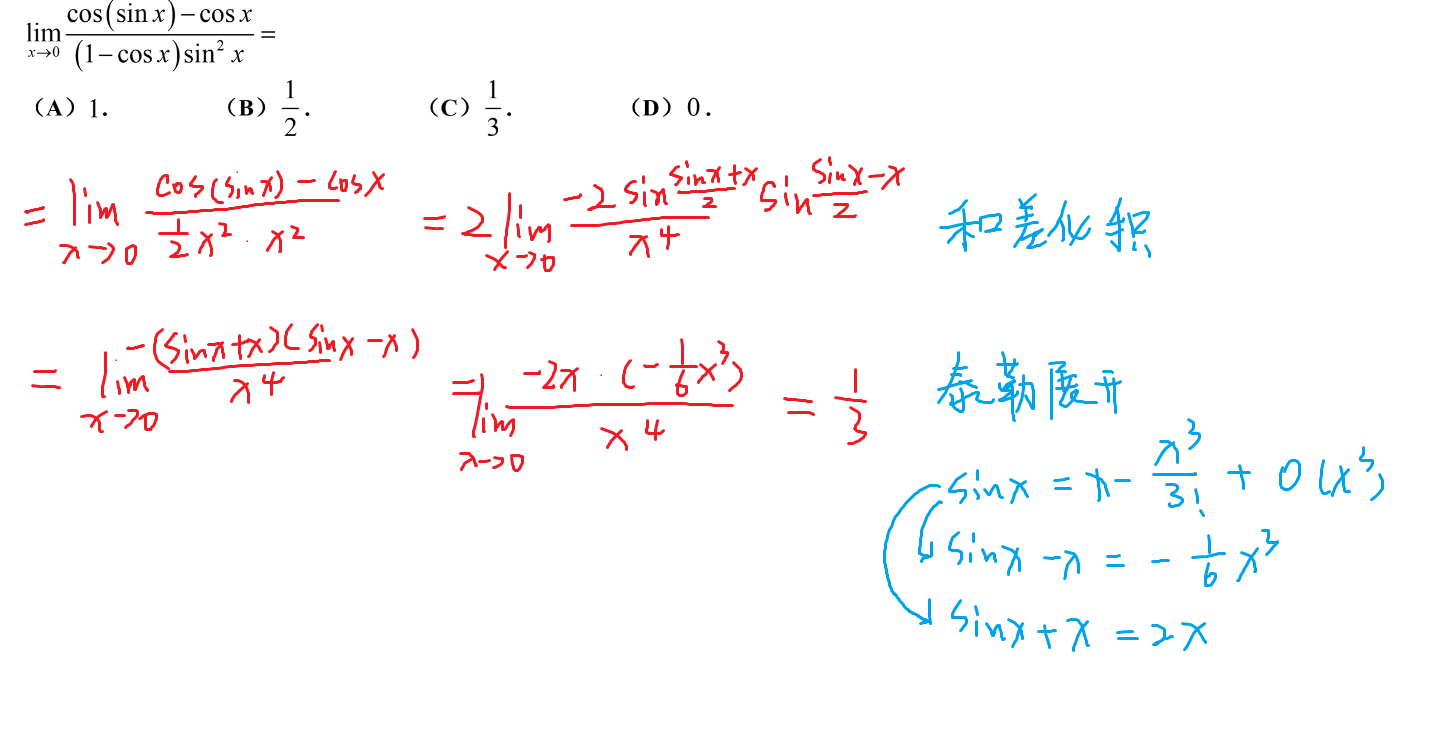 lim_{x→0} (cos(sin x) − cos x) / ((1 − cos x) sin² x) =
（A）1． （B）1/2． （C）1/3． （D）0．
= lim_{x→0} (cos(sin x) − cos x) / (1/2 x² · x²) = 2 lim_{x→0} (−2 sin (sin x + x)/2 sin (sin x − x)/2) / x⁴ 和差化积
= lim_{x→0} −(sin x + x)(sin x − x) / x⁴ = lim_{x→0} (−2x · (−1/6 x³)) / x⁴ = 1/3 泰勒展开
sin x = x − x³/3! + o(x³)
sin x − x = − 1/6 x³
sin x + x = 2x